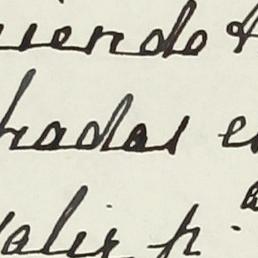 iendo
hadas e
alir p.a